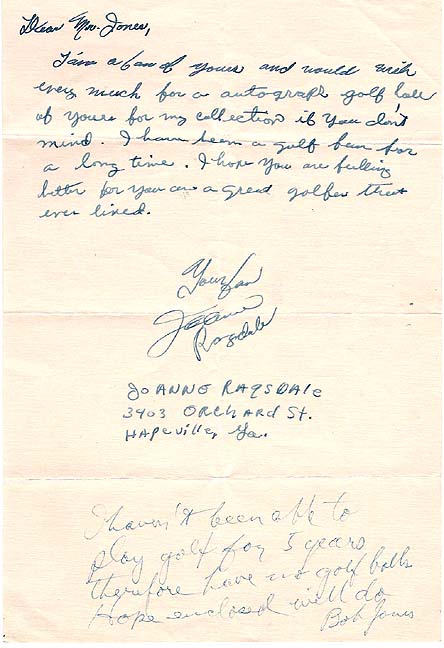 Dear Mr. Jones,
I am a fan of yours and would wish
every much for a autograph golf ball
of yours for my collection if you don't
mind. I have been a golf fan for
a long time. I hope you are feeling
better for you are a great golfer that
ever lived.
Your fan
Joanne
Ragsdale
JOANNE RAGSDALE
3903 ORCHARD St.
HAPEVILLE, Ga.
I haven't been able to
play golf for 5 years
therefore have no golf balls
Hope enclosed will do
Bob Jones